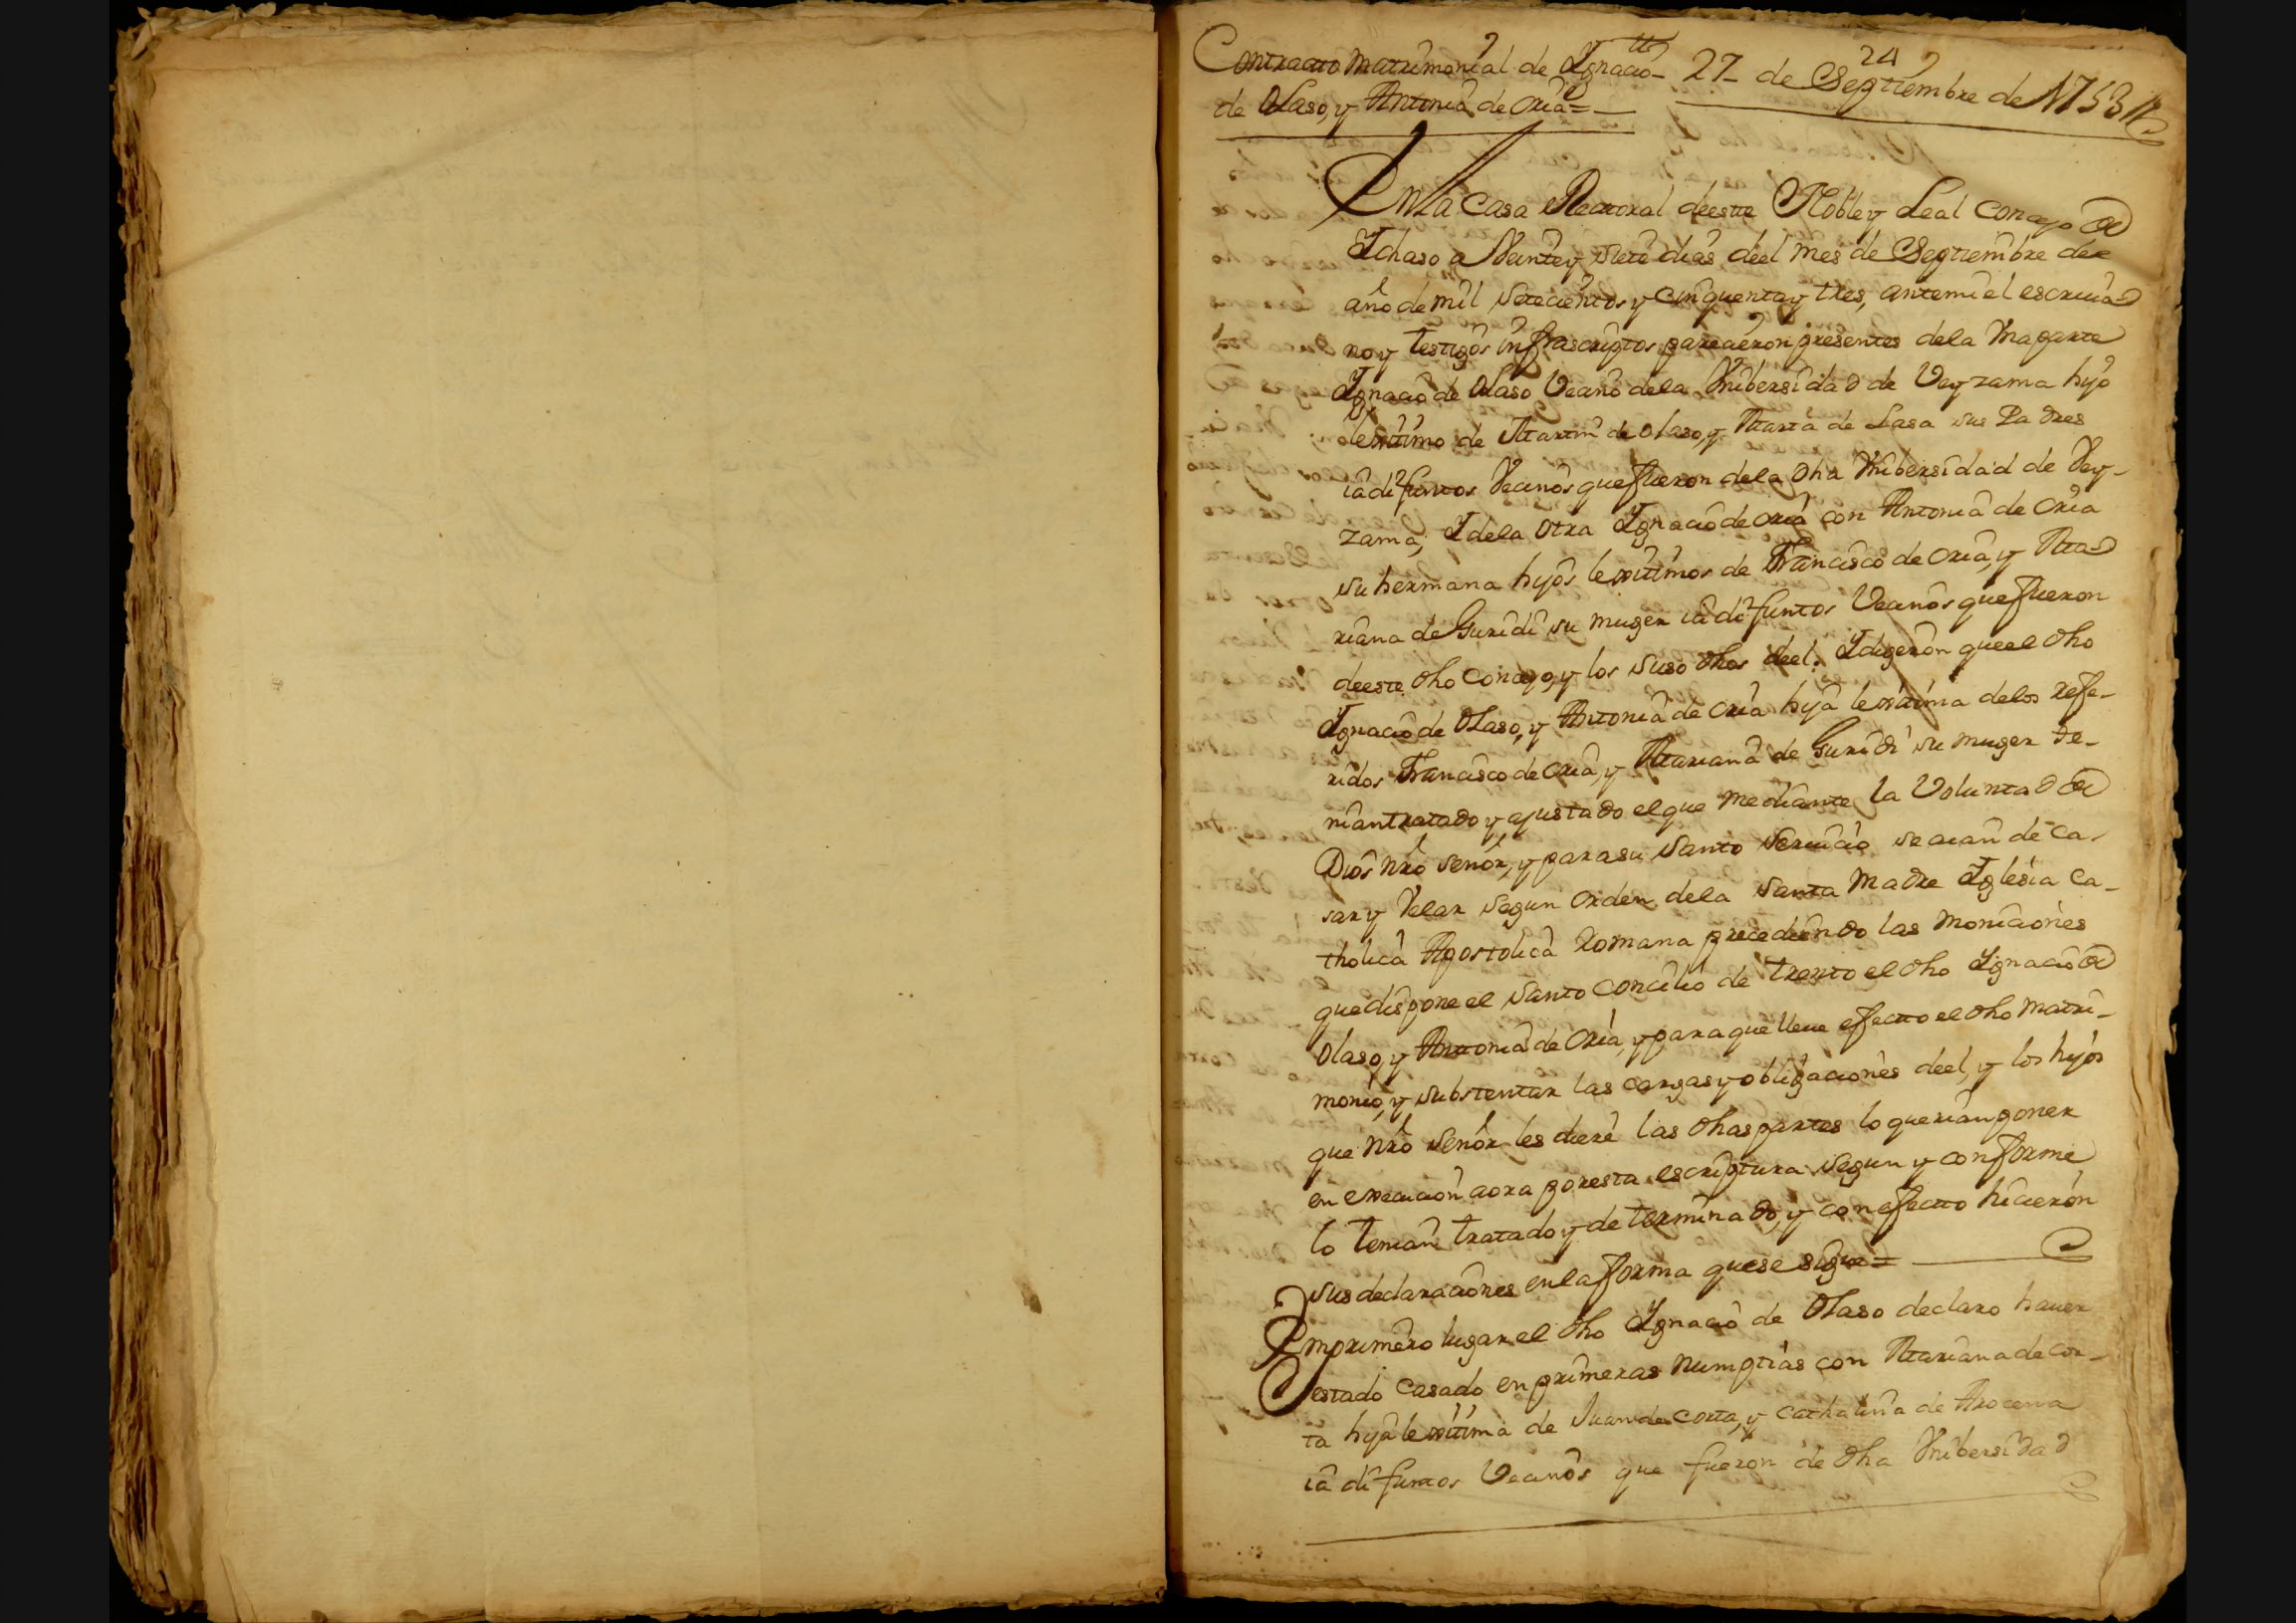 Contracto matrimonial de Ignacio
de Olaso, y Antonia de Oria =
27 de Septiembre de 1753
24
En la Casa Rectoral de este Noble y Leal Concejo de
Ichaso a Veinte y siete dias del mes de Septiembre de
año de mil setecientos y cinquenta y tres, ante mi el escriua
no y testigos infrascriptos parecieron presentes de la Vna parte
Ignacio de Olaso Vecino de la Vnibersidad de Veyzama hijo
lexitimo de Martin de Olaso, y Maria de Lasa sus Padres
ia difuntos Vecinos que fueron de la dha Vnibersidad de Vey-
zama; I de la otra Ignacio de Oria con Antonia de Oria
su hermana hijos lexitimos de Francisco de Oria, y Ma
riana de Guridi su muger ia difuntos Vecinos que fueron
de este dho Concejo, y los suso dhos deel. I digeron que el dho
Ignacio de Olaso, y Antonia de Oria hija lexitima de los refe-
ridos Francisco de Oria, y Mariana de Guridi su muger te-
nian tratado y ajustado el que mediante la Voluntad de
Dios nro señor, y para su santo seruicio se auian de ca-
sar y Velar segun orden de la santa Madre Iglesia Ca-
tholica Apostolica Romana precediendo las moniciones
que dispone el santo concilio de trento el dho Ignacio de
Olaso, y Antonia de Oria, y para que lleue efecto el dho matri-
monio, y substentar las cargas y obligaciones deel, y los hijos
que nro señor les diere las dhas partes lo querian poner
en execucion aora por esta escriptura segun y conforme
lo tenian tratado y determinado, y con efecto hicieron
sus declaraciones en la forma que se sigue =
En primero lugar el dho Ignacio de Olaso declaro hauer
estado casado en primeras numptias con Mariana de Cor-
ta hija lexitima de Juan de Corta, y Cathalina de Arocena
ia difuntos Vecinos que fueron de dha Vnibersidad